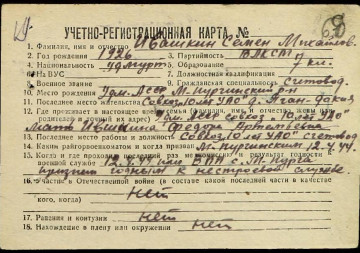 УЧЕТНО-РЕГИСТРАЦИОННАЯ КАРТА №
1. Фамилия, имя и отчество Ивашкин Семен Михайлов.
2. Год рождения 1926 3. Партийность ВЛКСМ
4. Национальность удмурт 5. Образование 7 кл.
6. № ВУС 7. Должностная квалификация
8. Военное звание 9. Гражданская специальность счетовод
10. Место рождения Удм. АССР М. Пургинский р-н
11. Последнее место жительства Совхоз "10 лет УАО"
12. Где проживает в настоящее время семья (фамилия, имя, отчество
родителей и точный их адрес) Удм. АССР совхоз "10 лет УАО"
Мать Ивашкина Федора
13. Последнее место работы и должность Совхоз 10 лет УАО счетовод
14. Каким райгорвоенкоматом и когда призван М. Пургинским 12.4.44
15. Когда и где проходил и результат годности
к военной службе 12.4.44 с. М-Пурга
признан годным к нестроевой службе.
16. Участие в Отечественной войне (в составе какой последней части в качестве
кого, когда) нет
17. Ранения и контузии нет
18. Нахождение в плену или окружении нет